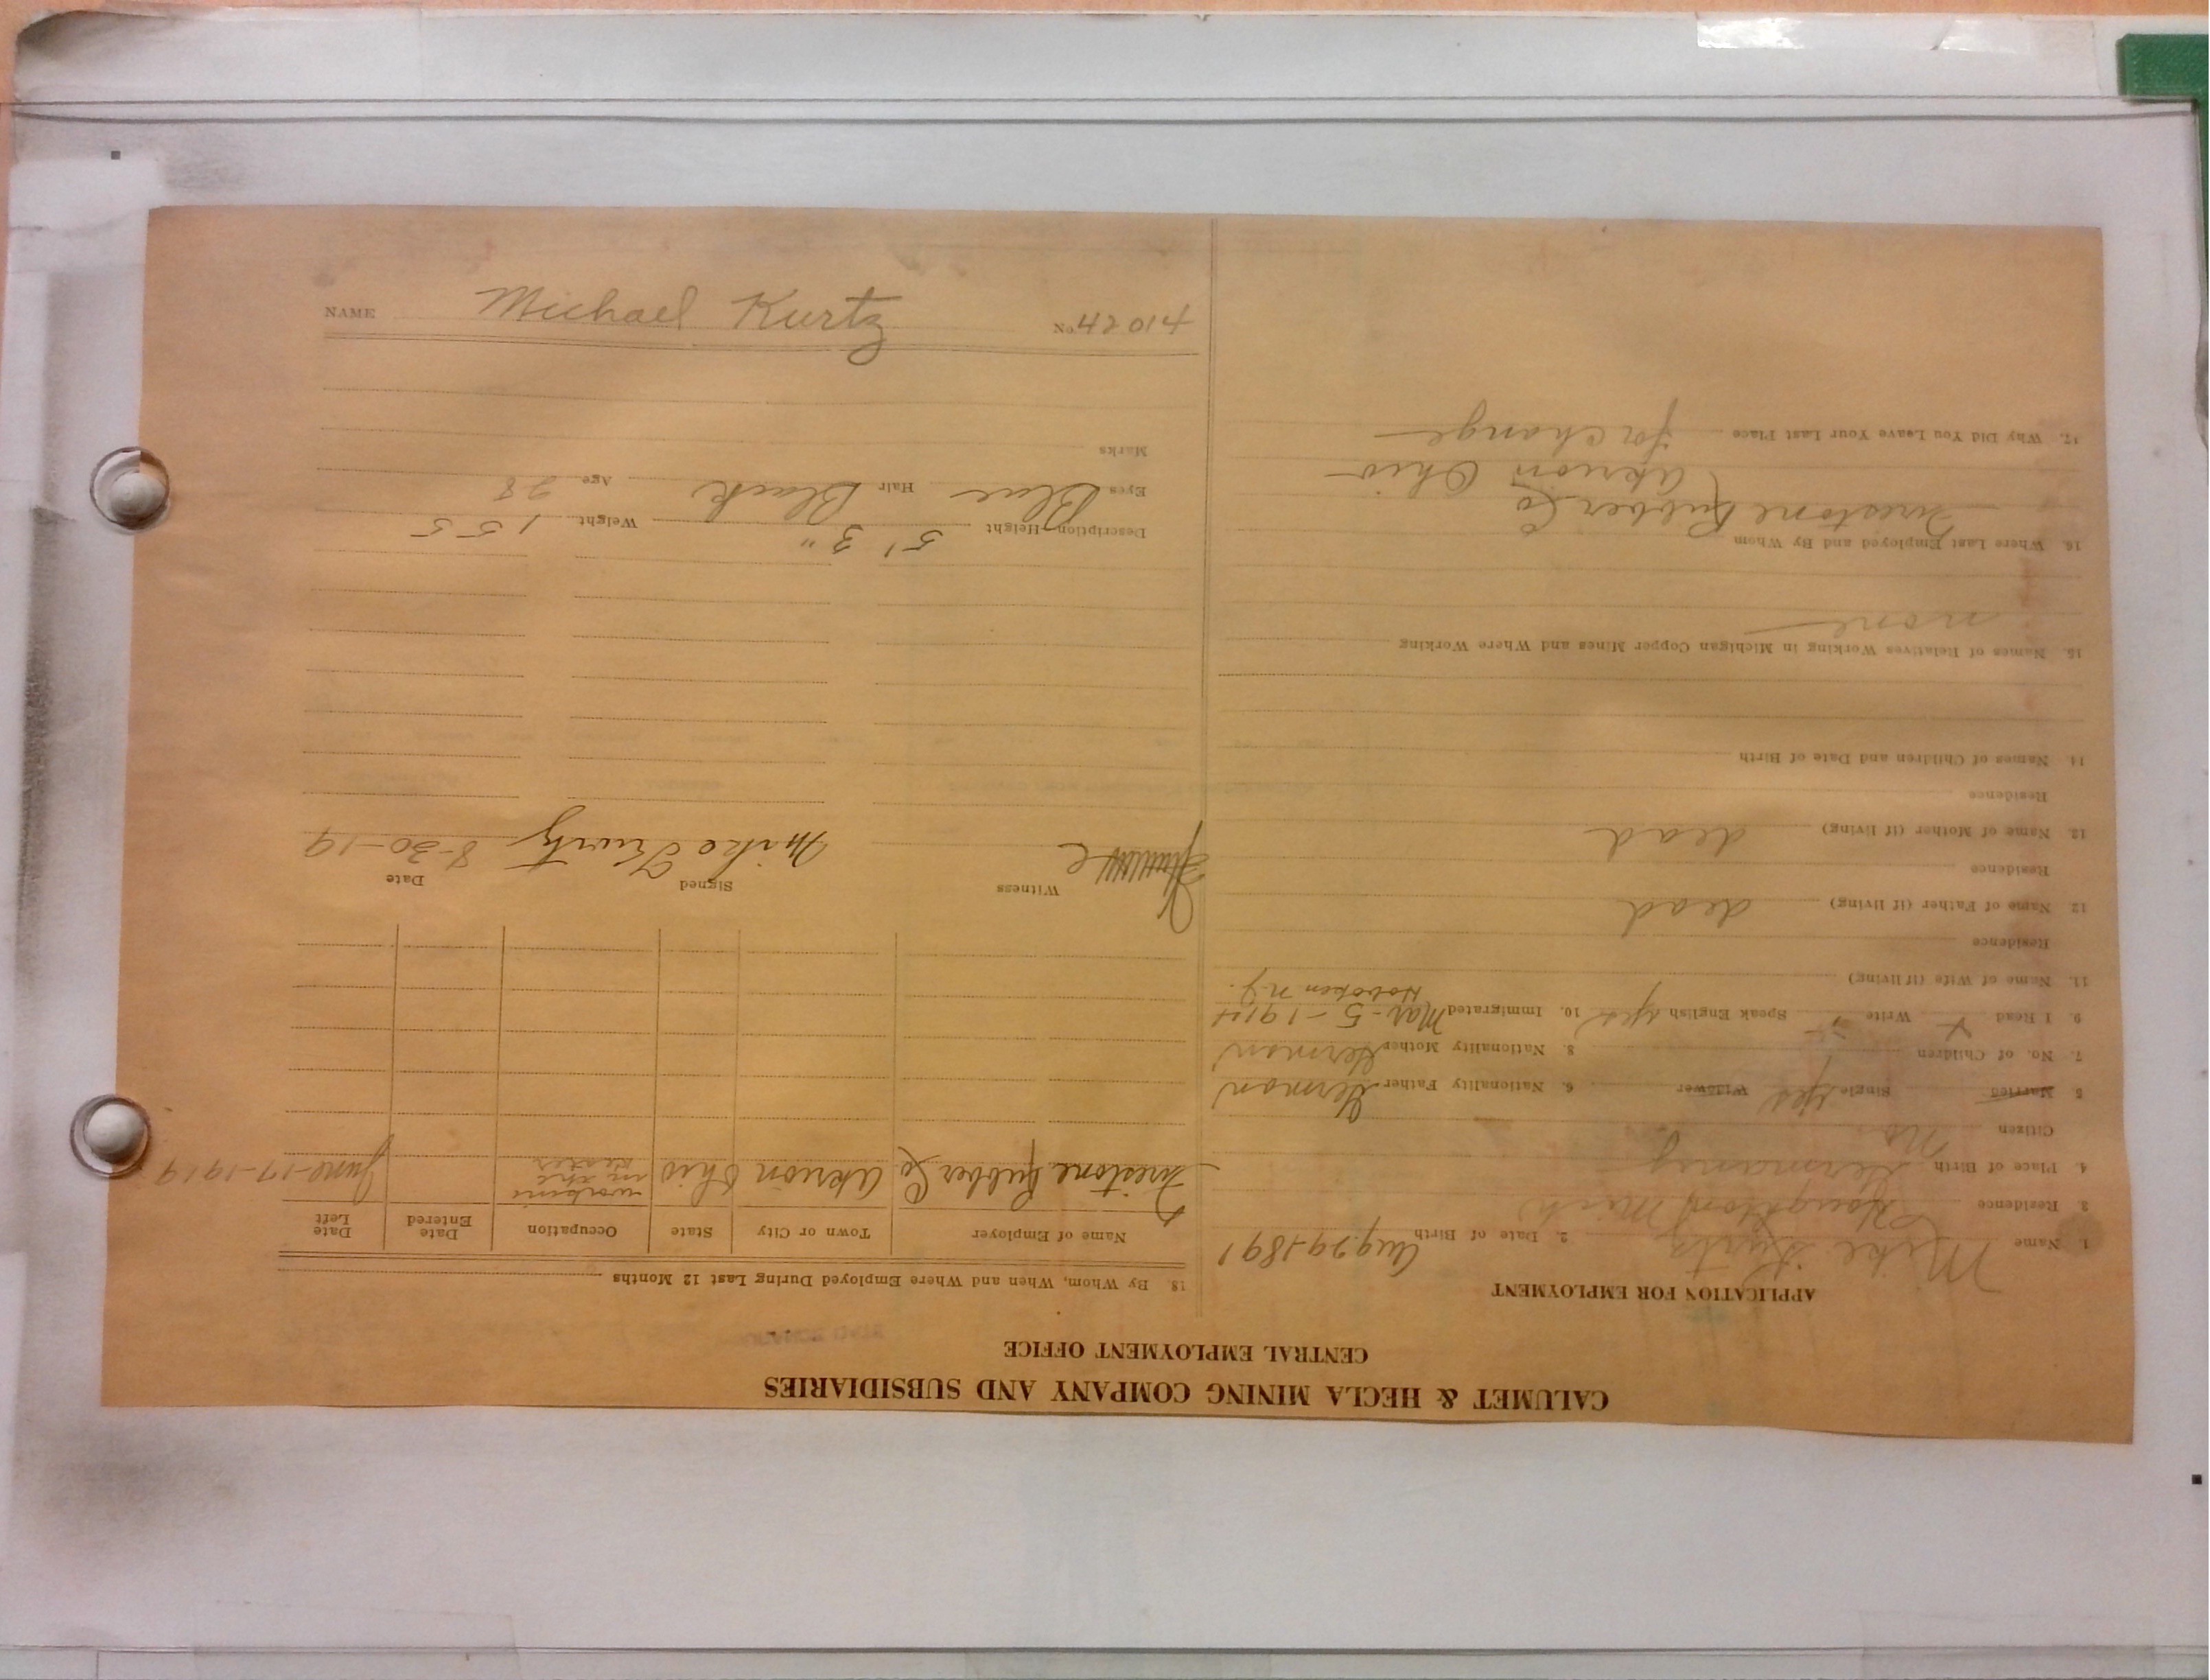 CALUMET & HECLA MINING COMPANY AND SUBSIDIARIES
CENTRAL EMPLOYMENT OFFICE
APPLICATION FOR EMPLOYMENT
1. Name Mike Kurtz 2. Date of Birth Aug 29-1891
3. Residence Houghton Mich
4. Place of Birth Germany
Citizen No
5 Married Single yes Widower 6. Nationality Father German
7. No. of Children 8. Nationality Mother German
9. I Read Write Speak English yes 10. Immigrated Mar-5-1914
Hoboken N.J.
11. Name of Wife (if living)
Residence
12. Name of Father (if living) dead
Residence
13. Name of Mother (if living) dead
Residence
14. Names of Children and Date of Birth
15. Names of Relatives Working in Michigan Copper Mines and Where Working
none
16. Where Last Employed and By Whom
Firestone Rubber Co
Akrion Ohio
17. Why Did You Leave Your Last Place for change
18. By Whom, When and Where Employed During Last 12 Months
Name of Employer Town or City State Occupation Date Entered Date Left
Firestone Rubber Co Akrion Ohio Ohio working in the June-17-1919
Witness Signed Date
Mike Kurtz 8-30-19
Description—Height 5' 3" Weight 155
Eyes Blue Hair Black Age 28
Marks
NAME Michael Kurtz No. 42014